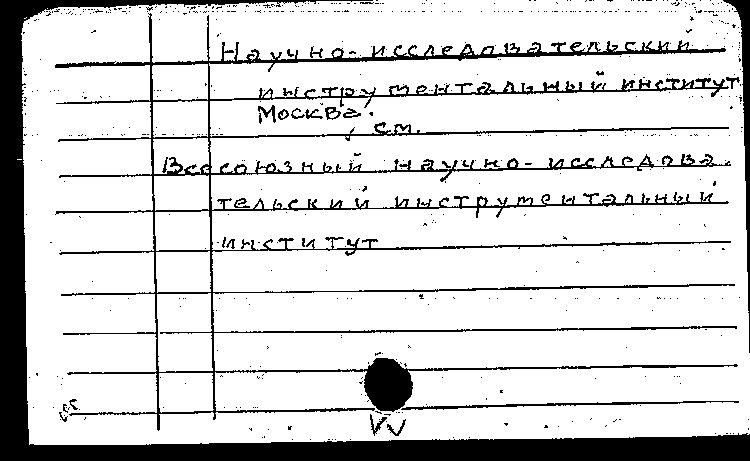 Научно-исследовательский
инструментальный институт
Москва.
см.
Всесоюзный научно-исследова-
тельский инструментальный
институт